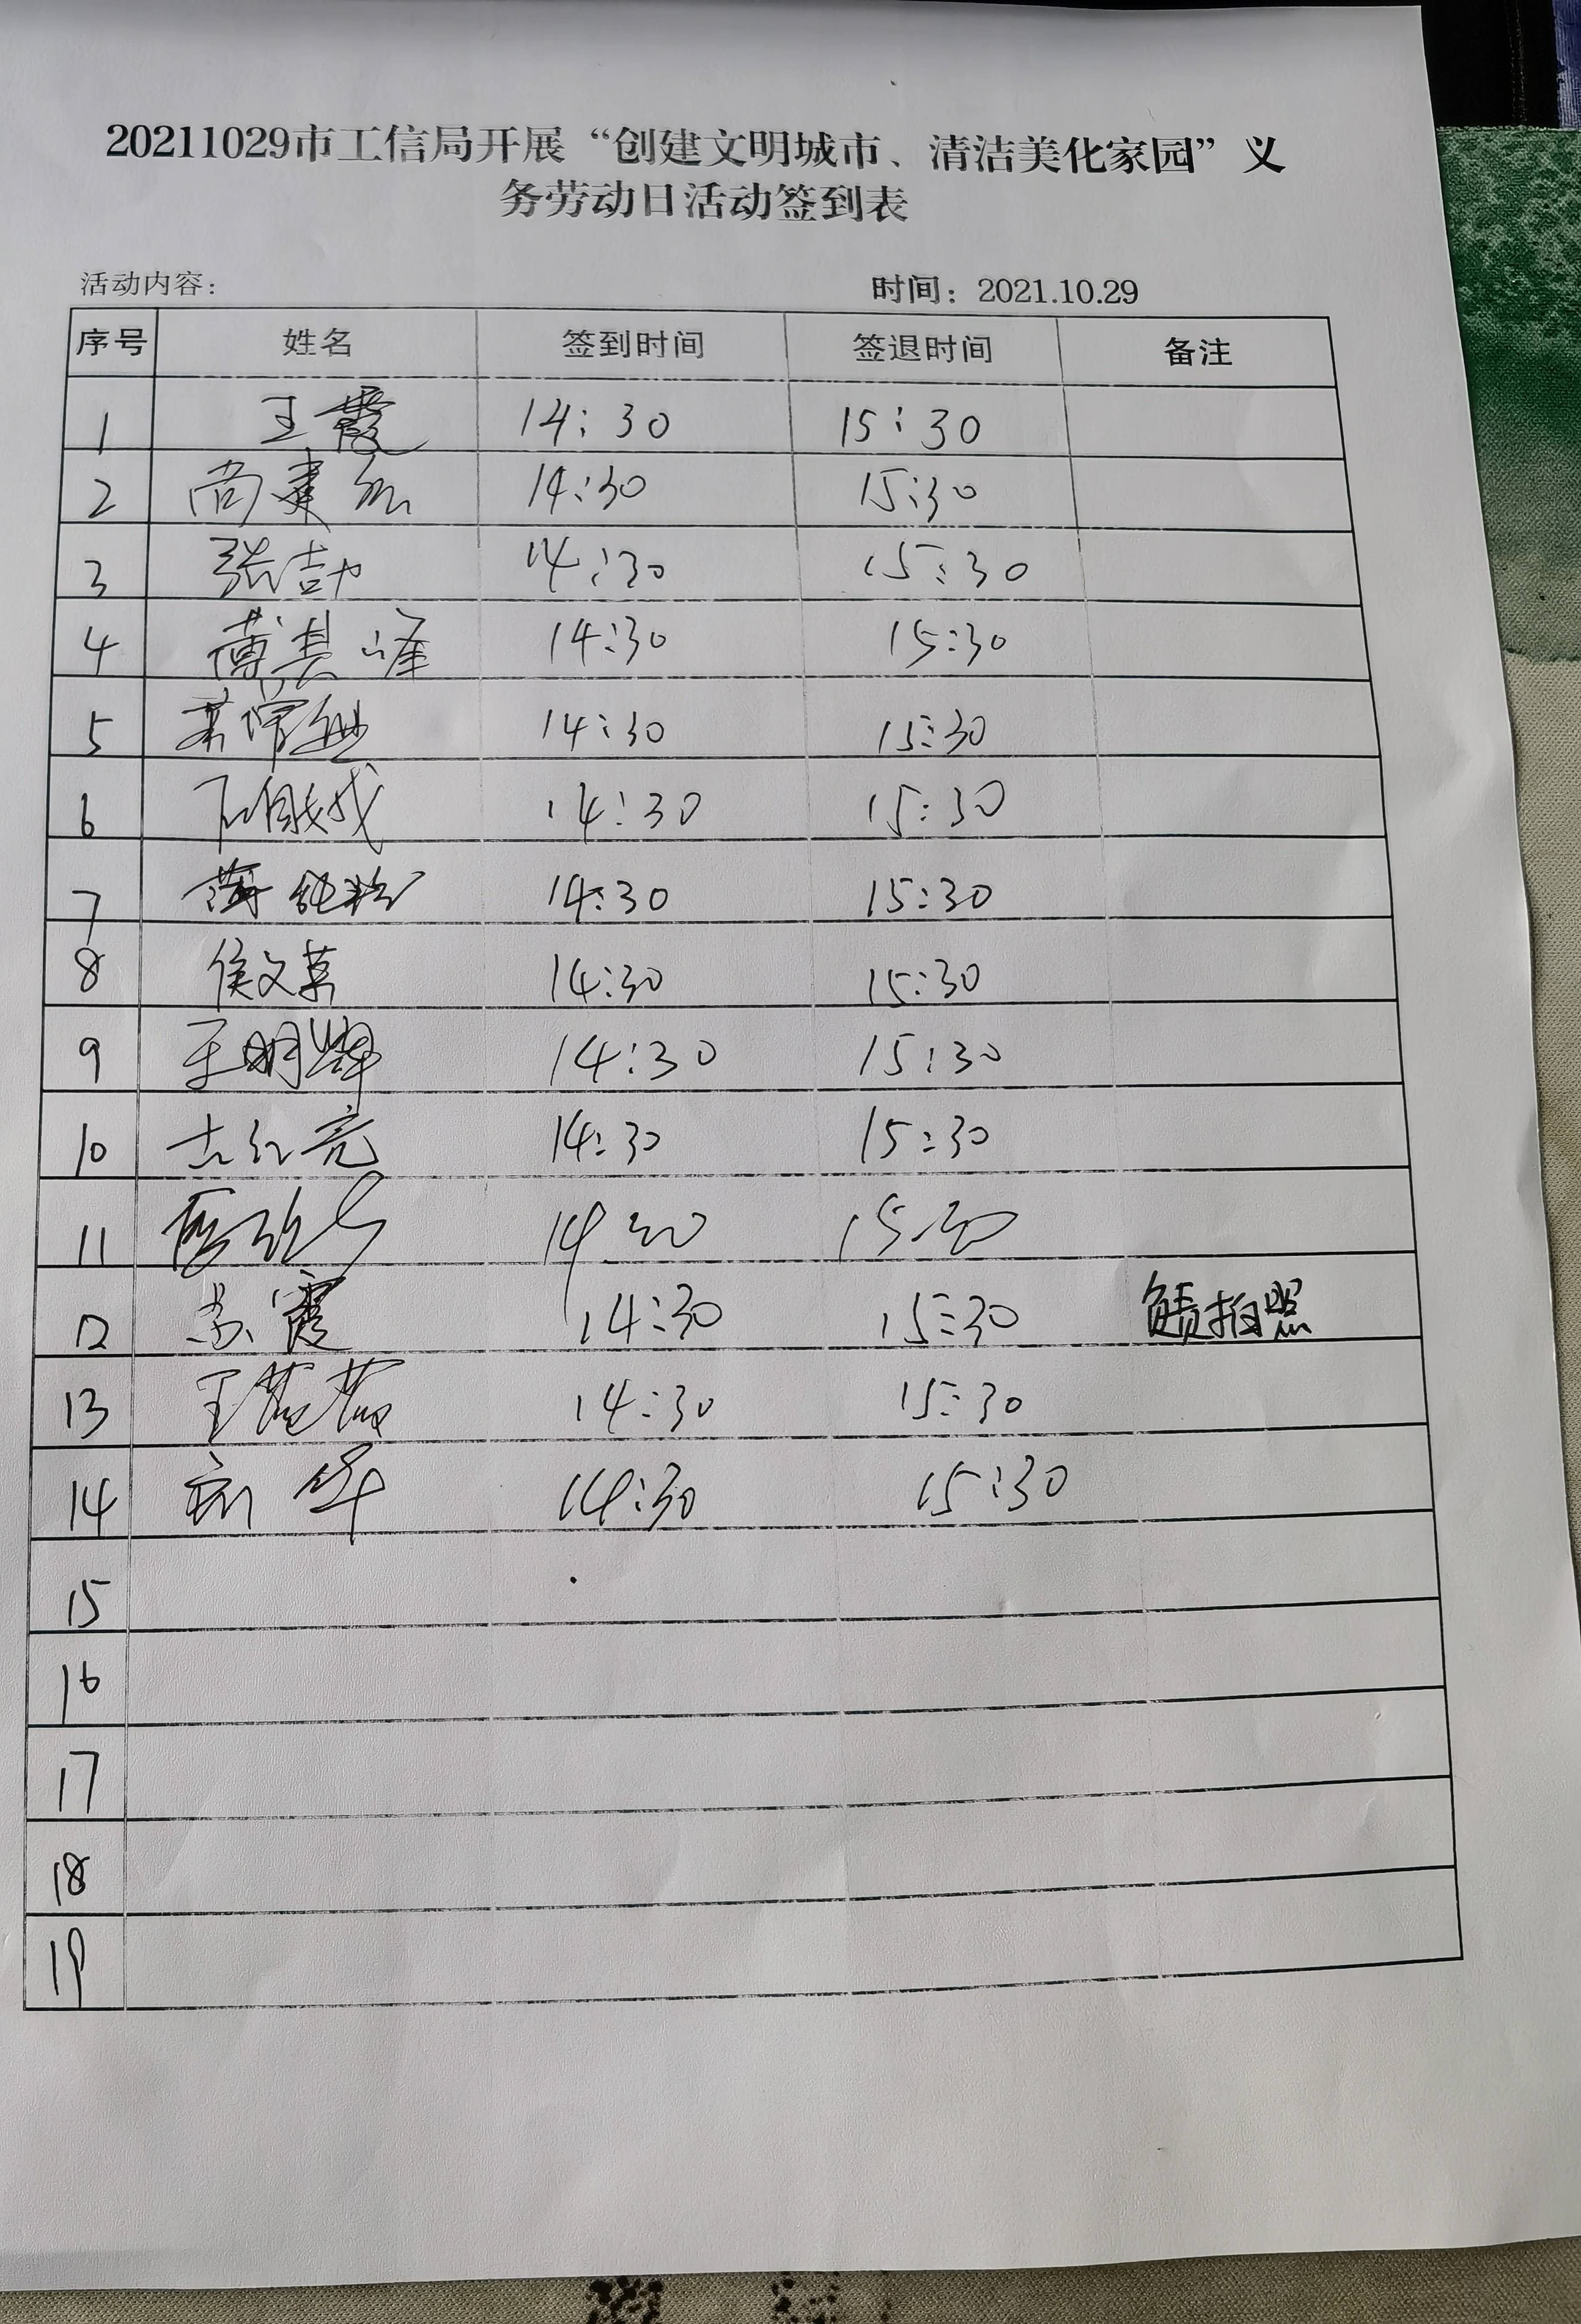 20211029市工信局开展“创建文明城市、清洁美化家园”义
务劳动日活动签到表
活动内容： 时间：2021.10.29
序号 姓名 签到时间 签退时间 备注
1 王霞 14:30 15:30
2 尚建 14:30 15:30
3 张喆 14:30 15:30
4 薄其峰 14:30 15:30
5 14:30 15:30
6 14:30 15:30
7 薄纯松 14:30 15:30
8 侯文慕 14:30 15:30
9 王明辉 14:30 15:30
10 红亮 14:30 15:30
11 14 30 15 30
12 苏霞 14:30 15:30 负责拍照
13 王茹茹 14:30 15:30
14 华 14:30 15:30
15
16
17
18
19